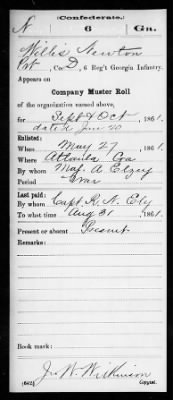 (Confederate.)
N 6 Ga.
Willis Newton
Pvt, Co. D, 6 Reg't Georgia Infantry.
Appears on
Company Muster Roll
of the organization named above,
for Sept & Oct, 1861.
dated Jan 20
Enlisted:
When May 27, 1861.
Where Atlanta Ga
By whom Maj. A. Elzey
Period War
Last paid:
By whom Capt. R. N. Ely
To what time Aug 31, 1861.
Present or absent Present
Remarks:
Book mark:
J. W. Wilkinson
(642) Copyist.